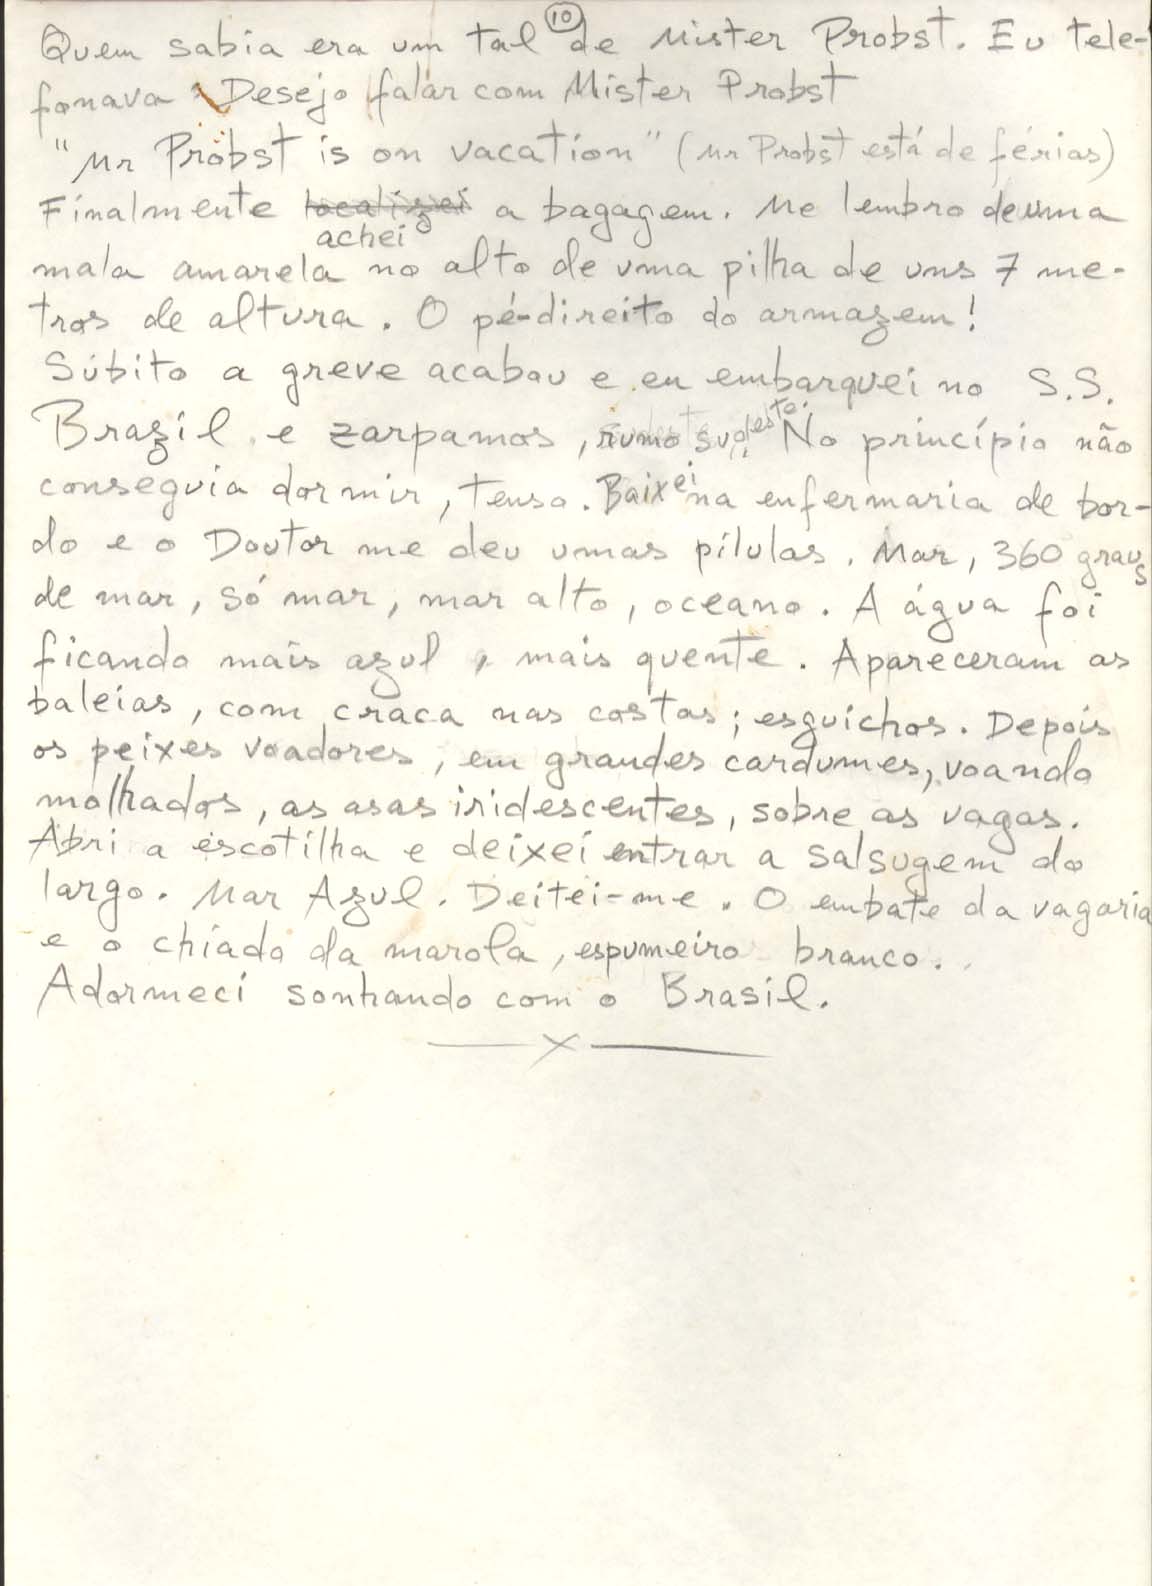 10
Quem sabia era um tal de Mister Probst. Eu tele-
fonava: Desejo falar com Mister Probst
"Mr Probst is on vacation" (Mr Probst está de férias)
Finalmente localizei a bagagem. Me lembro de uma
achei
mala amarela no alto de uma pilha de uns 7 me-
tros de altura. O pé-direito do armazem!
Súbito a greve acabou e eu embarquei no S.S.
Brazil e zarpamos, rumo sudeste. No princípio não
conseguia dormir, tenso. Baixei na enfermaria de bor-
do e o Doutor me deu umas pílulas. Mar, 360 graus
de mar, só mar, mar alto, oceano. A água foi
ficando mais azul, mais quente. Apareceram as
baleias, com craca nas costas; esguichos. Depois
os peixes voadores, em grandes cardumes, voando
molhados, as asas iridescentes, sobre as vagas.
Abri a escotilha e deixei entrar a salsugem do
largo. Mar Azul. Deitei-me. O embate da vagaria
e o chiado da marola, espumeiro branco.
Adormeci sonhando com o Brasil.
x